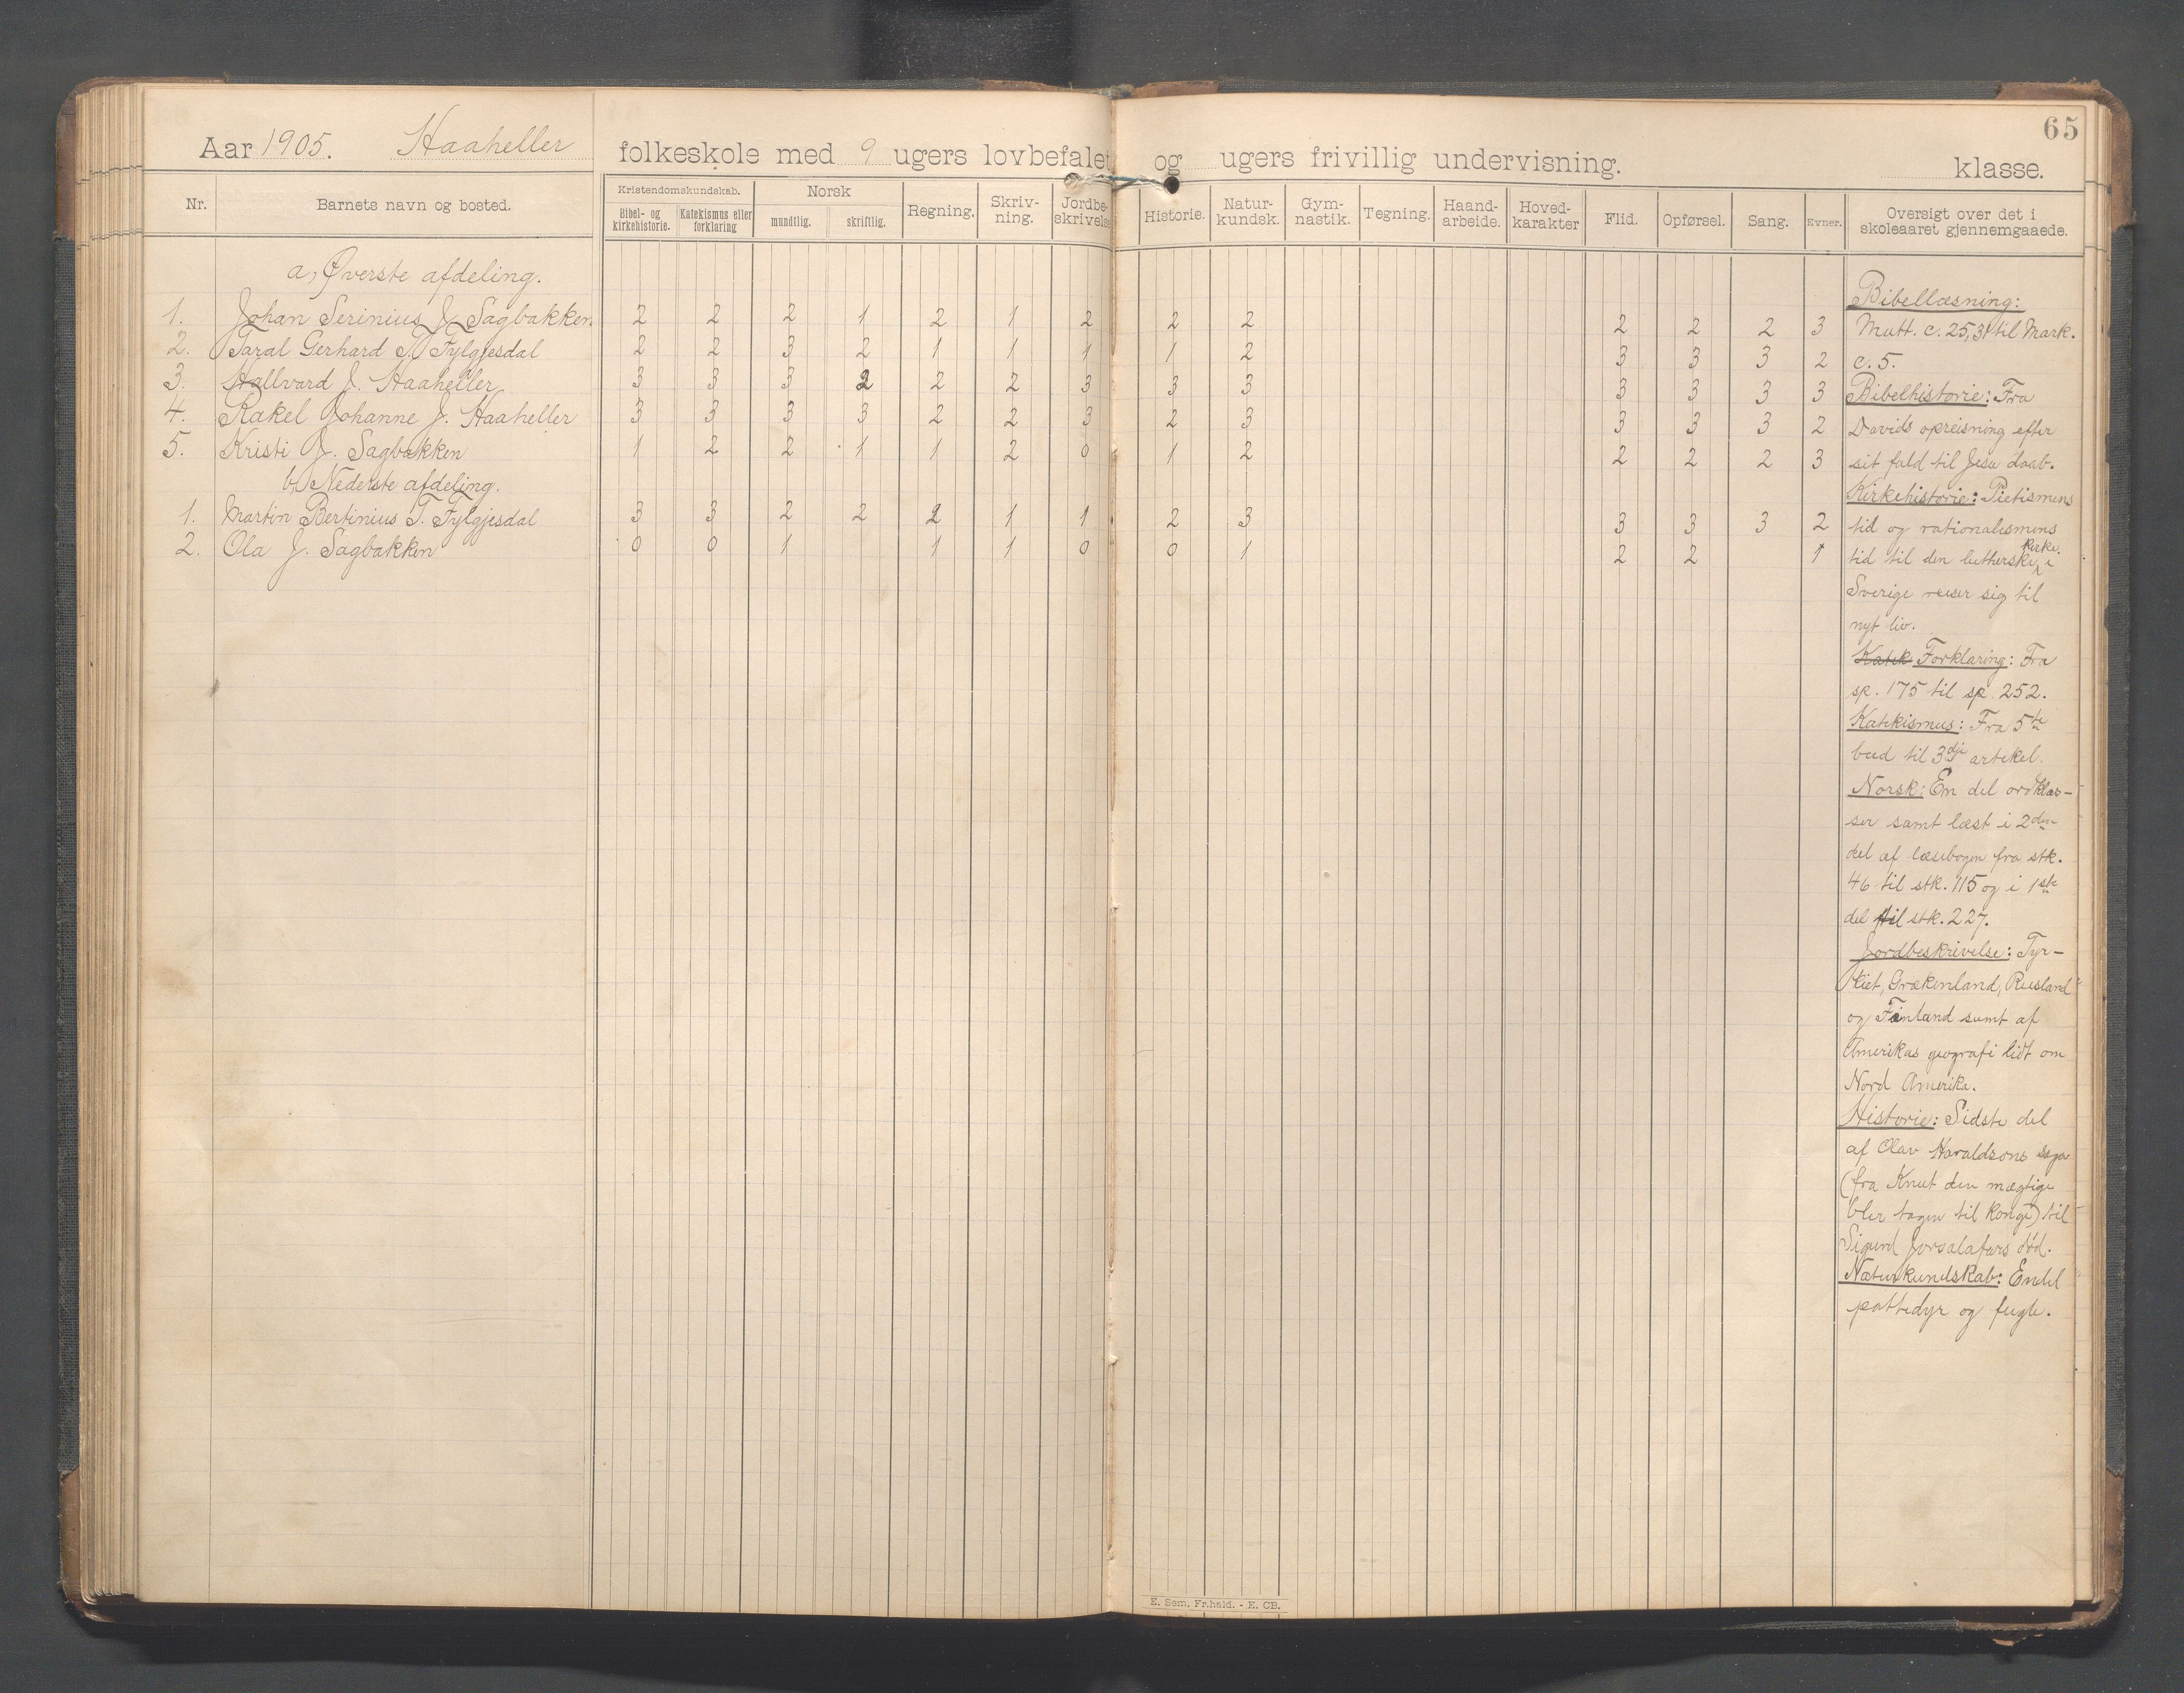 65
Aar 1905. Haaheller folkeskole med 9 ugers lovbefalet og ugers frivillig undervisning. klasse.
Nr. Barnets navn og bosted. Kristendomskundskab. Bibel- og kirkehistorie. Katekismus eller forklaring Norsk mundtlig. skriftlig. Regning. Skriv-ning. Jordbe-skrivelse Historie. Natur-kundsk. Gym-nastik. Tegning. Haand-arbeide. Hoved-karakter Flid. Opførsel. Sang. Evner. Oversigt over det i skoleaaret gjennemgaaede.
a, Øverste afdeling.
1. Johan Serinius J. Sagbakken 2 2 2 1 2 1 2 2 2 2 2 2 3
2. Taral Gerhard T. Fylgjesdal 2 2 3 2 1 1 1 1 2 3 3 3 2
3. Hallvard J. Haaheller 3 3 3 2 2 2 3 3 3 3 3 3 3
4. Rakel Johanne J. Haaheller 3 3 3 3 2 2 3 2 3 3 3 3 2
5. Kristi J. Sagbakken 1 2 2 1 1 2 0 1 2 2 2 2 3
b, Nederste afdeling.
1. Martin Bertinius T. Fylgjesdal 3 3 2 2 2 1 1 2 3 3 3 3 2
2. Ola J. Sagbakken 0 0 1 1 1 0 0 1 2 2 1
Bibellæsning:
Matt. c. 25,31 til Mark.
c. 5.
Bibelhistorie: Fra
Davids opreisning efter
sit fald til Jesu daab.
Kirkehistorie: Pietismens
tid og rationalismens
tid til den lutherske kirke i
Sverige reiser sig til
nyt liv.
Katek Forklaring: Fra
sp. 175 til sp. 252.
Katekismus: Fra 5te
bud til 3dje artikel.
Norsk: En del ordklas-
ser samt læst i 2den
del af læsebogen fra stk.
46 til stk. 115 og i 1ste
del til stk. 227.
Jordbeskrivelse: Tyr-
kiet, Grækenland, Rusland
og Finland samt af
Amerikas geografi lidt om
Nord Amerika.
Historie: Sidste del
af Olav Haraldsons saga
(fra Knut den mægtige
blir tagen til konge) til
Sigurd Jorsalafars død.
Naturkundskab: Endel
pattedyr og fugle.
E. Sem, Fr.hald. - E. CB.